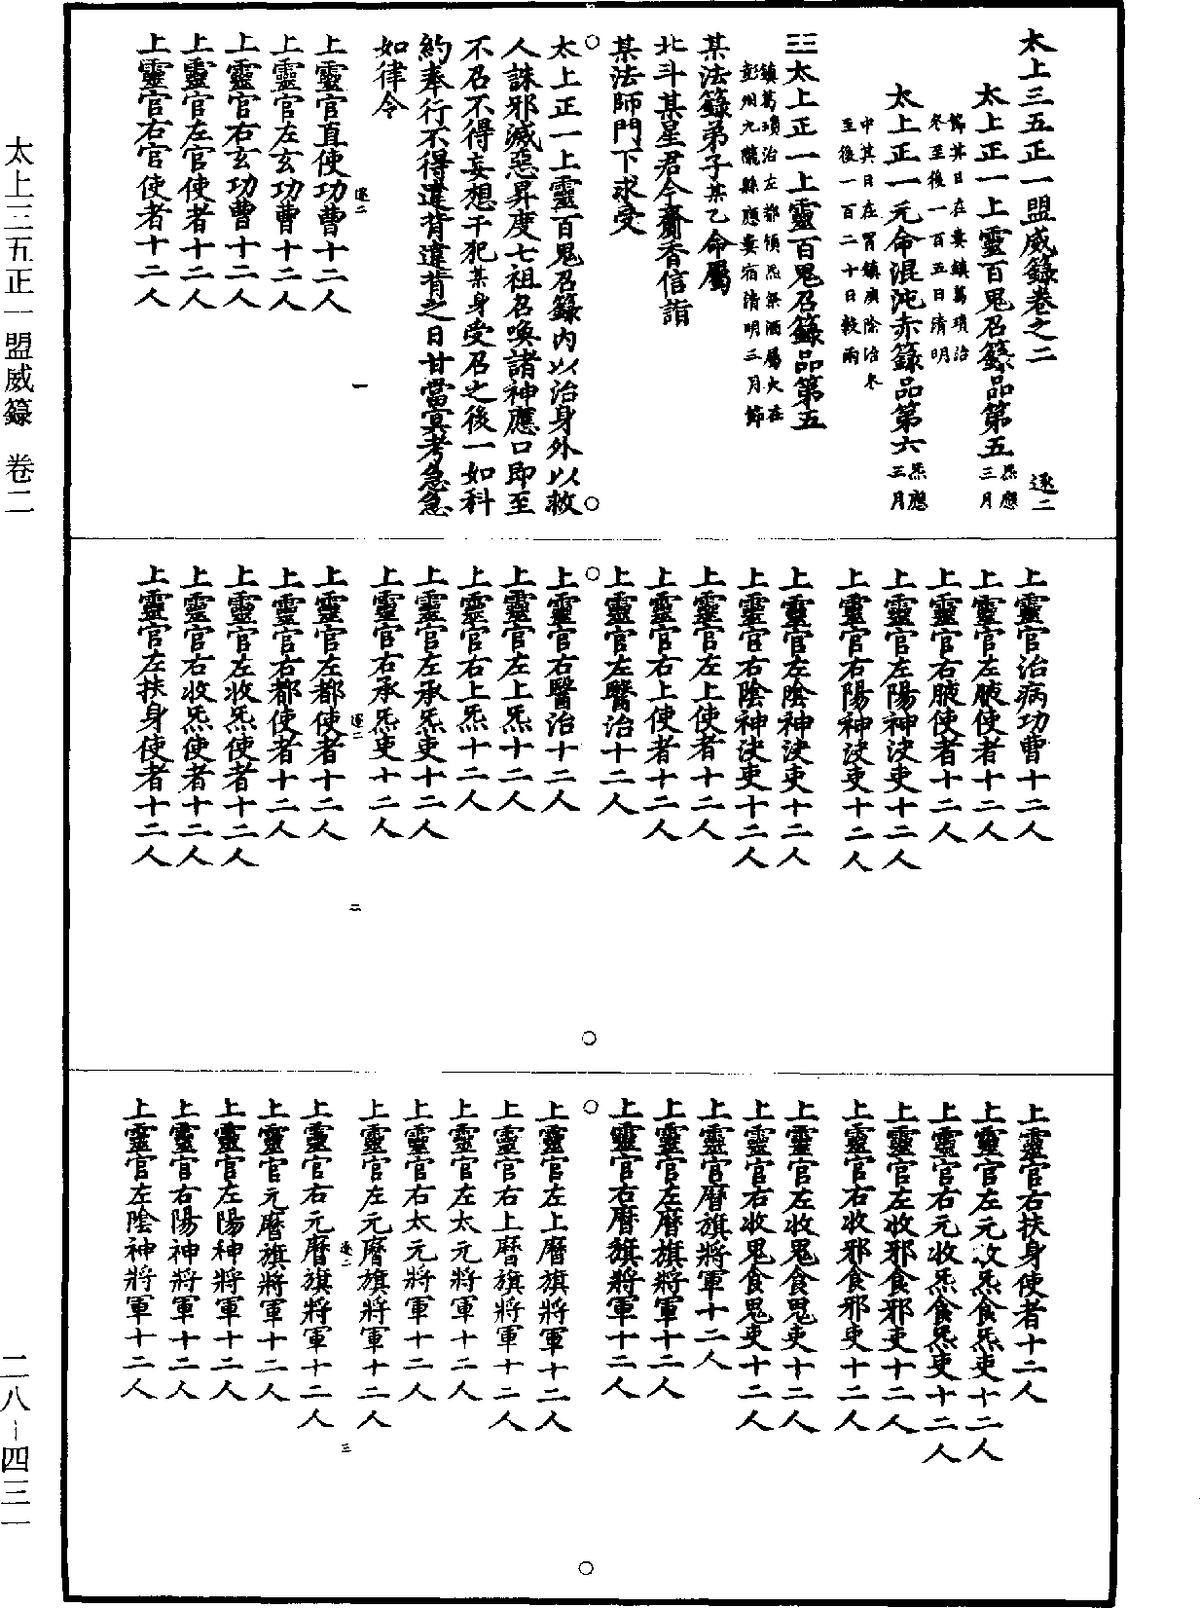 太上三五正一盟威籙卷之二
逐二
太上正一上靈百鬼召籙品第五炁應三月
節其日在婁鎮葛璝治
冬至後一百五日清明
太上正一元命混沌赤籙品第六炁應三月
中其日在胃鎮庚除治冬
至後一百二十日穀雨
三三太上正一上靈百鬼召籙品第五
鎮葛璝治左都領炁祭酒屬火在
彭州九隴縣應婁宿清明三月節
某法籙弟子某乙命屬
北斗某星君今齎香信詣
某法師門下求受
太上正一上靈百鬼召籙內以治身外以救
人誅邪滅惡昇度七祖名喚諸神應口即至
不召不得妄想干犯某身受召之後一如科
約奉行不得違背違背之日甘當寅考急急
如律令
上靈官直使功曹十二人
逐二 一
上靈官左玄功曹十二人
上靈官右玄功曹十二人
上靈官左官使者十二人
上靈官右官使者十二人
上靈官治病功曹十二人
上靈官左腋使者十二人
上靈官右腋使者十二人
上靈官左陽神決吏十二人
上靈官右陽神決吏十二人
上靈官左陰神決吏十二人
上靈官右陰神決吏十二人
上靈官左上使者十二人
上靈官右上使者十二人
上靈官左醫治十二人
上靈官右醫治十二人
上靈官左上炁十二人
上靈官右上炁十二人
上靈官左承炁吏十二人
上靈官右承炁吏十二人
逐二 二
上靈官左都使者十二人
上靈官右都使者十二人
上靈官左收炁使者十二人
上靈官右收炁使者十二人
上靈官左扶身使者十二人
上靈官右扶身使者十二人
上靈官左元收炁食炁吏十二人
上靈官右元收炁食炁吏十二人
上靈官左收邪食邪吏十二人
上靈官右收邪食邪吏十二人
上靈官左收鬼食鬼吏十二人
上靈官右收鬼食鬼吏十二人
上靈官曆旗將軍十二人
上靈官左曆旗將軍十二人
上靈官右曆旗將軍十二人
上靈官左上曆旗將軍十二人
上靈官右上曆旗將軍十二人
上靈官左太元將軍十二人
上靈官右太元將軍十二人
上靈官左元曆旗將軍十二人
逐二 三
上靈官右元曆旗將軍十二人
上靈官元曆旗將軍十二人
上靈官左陽神將軍十二人
上靈官右陽神將軍十二人
上靈官左陰神將軍十二人
太上三五正一盟威籙 卷二
二八-四三一